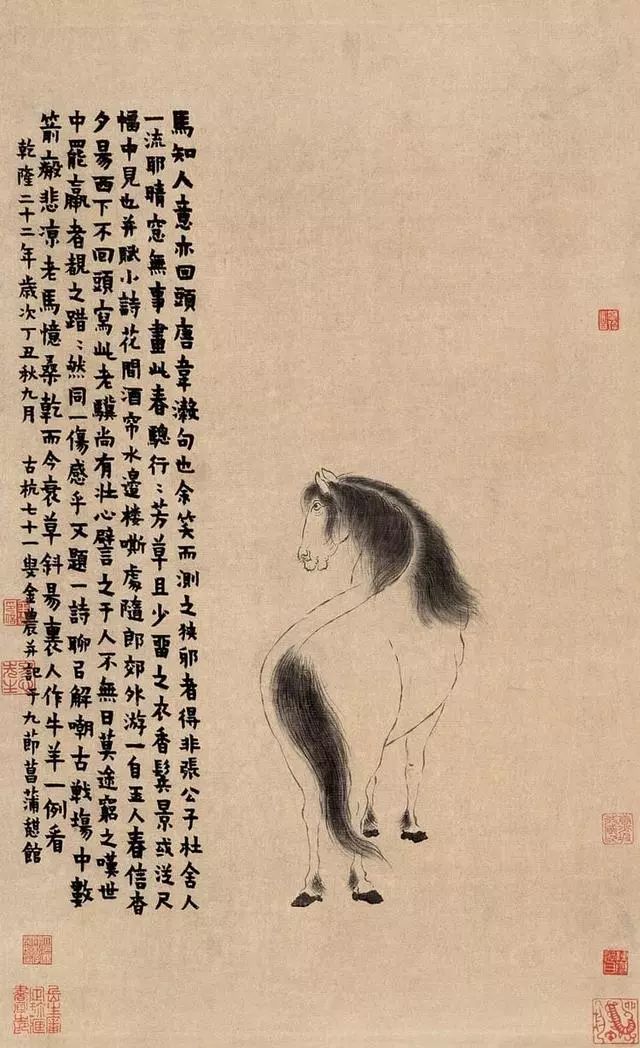 馬知人意亦回頭唐韋瀫句也余笑而測之狹邪者得非張公子杜舍人
一流耶晴窓無事畫此春驄行:芳草且少畱之衣香鬂景或從尺
幅中見也并賦小詩花間酒帘水邉楼嘶處隨郎郊外游一自玉人春信杳
夕昜西下不回頭寫此老驥尚有壯心譬之于人不無日莫途窮之嘆世
中罷羸者覩之踖:然同一傷感乎又題一詩聊㠯解嘲古戰塲中數
箭瘢悲凉老馬憶桑乾而今衰草斜昜裏人作牛羊一例看
乾隆二十二年歲次丁丑秋九月 古杭七十一叟金農并記于九節菖蒲憇館